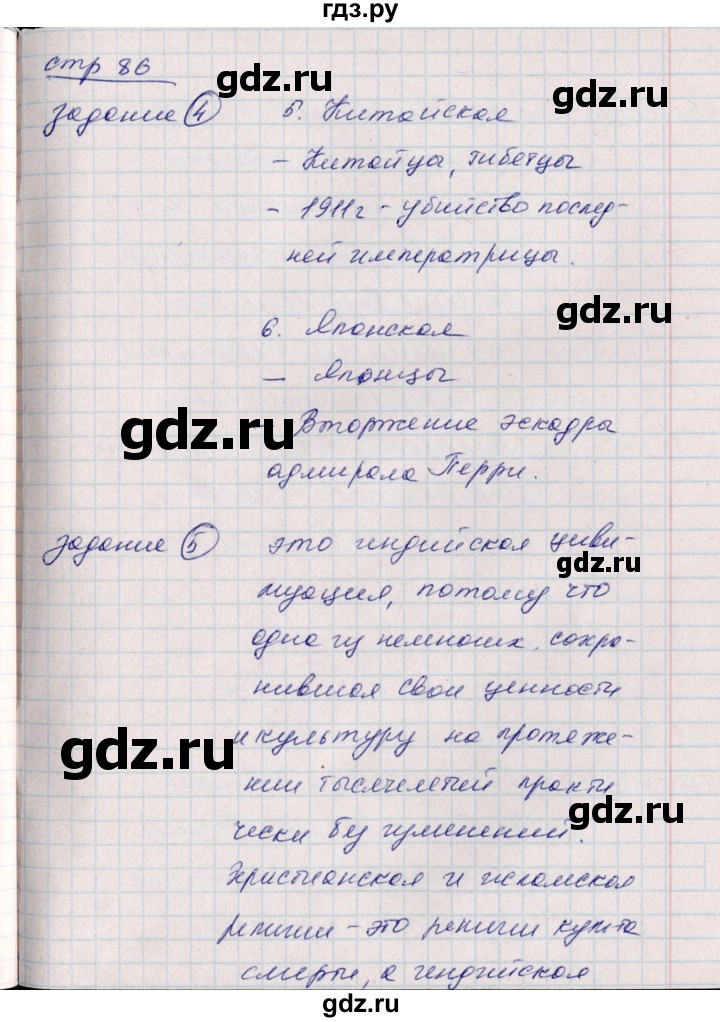 гдз.ру
стр 86
задание 4
5. Китайская
- Китайцы, тибетцы
- 1911г - убийство послед-
ней императрицы.
gdz.ru
gdz.ru
6. Японская
- Японцы
- Вторжение эскадры
адмирала Перри.
gdz.ru
задание 5
это индийская циви-
лизация, потому что
одна из немногих, сохра-
нившая свои ценности
и культуру на протяже-
нии тысячелетий практи
чески без изменений.
Христианская и исламская
религии - это религии культа
смерти, а индийская
gdz.ru
gdz.ru
gdz.ru
gdz.ru